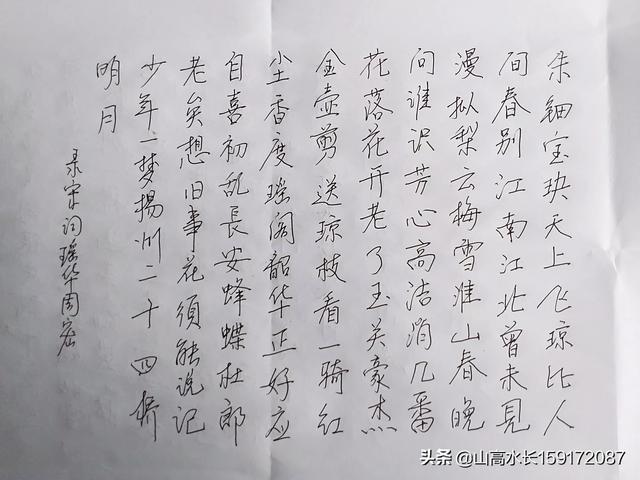 朱钿宝玦天上飞琼比人
间春别江南江北曾未见
漫拟梨云梅雪淮山春晚
问谁识芳心高洁消几番
花落花开老了玉关豪杰
金壶剪送琼枝看一骑红
尘香度瑶阙韶华正好应
自喜初乱長安蜂蝶杜郎
老矣想旧事花须能说记
少年一梦揚州二十四桥
明月
录宋词瑶华周密
头条 @山高水长159172087